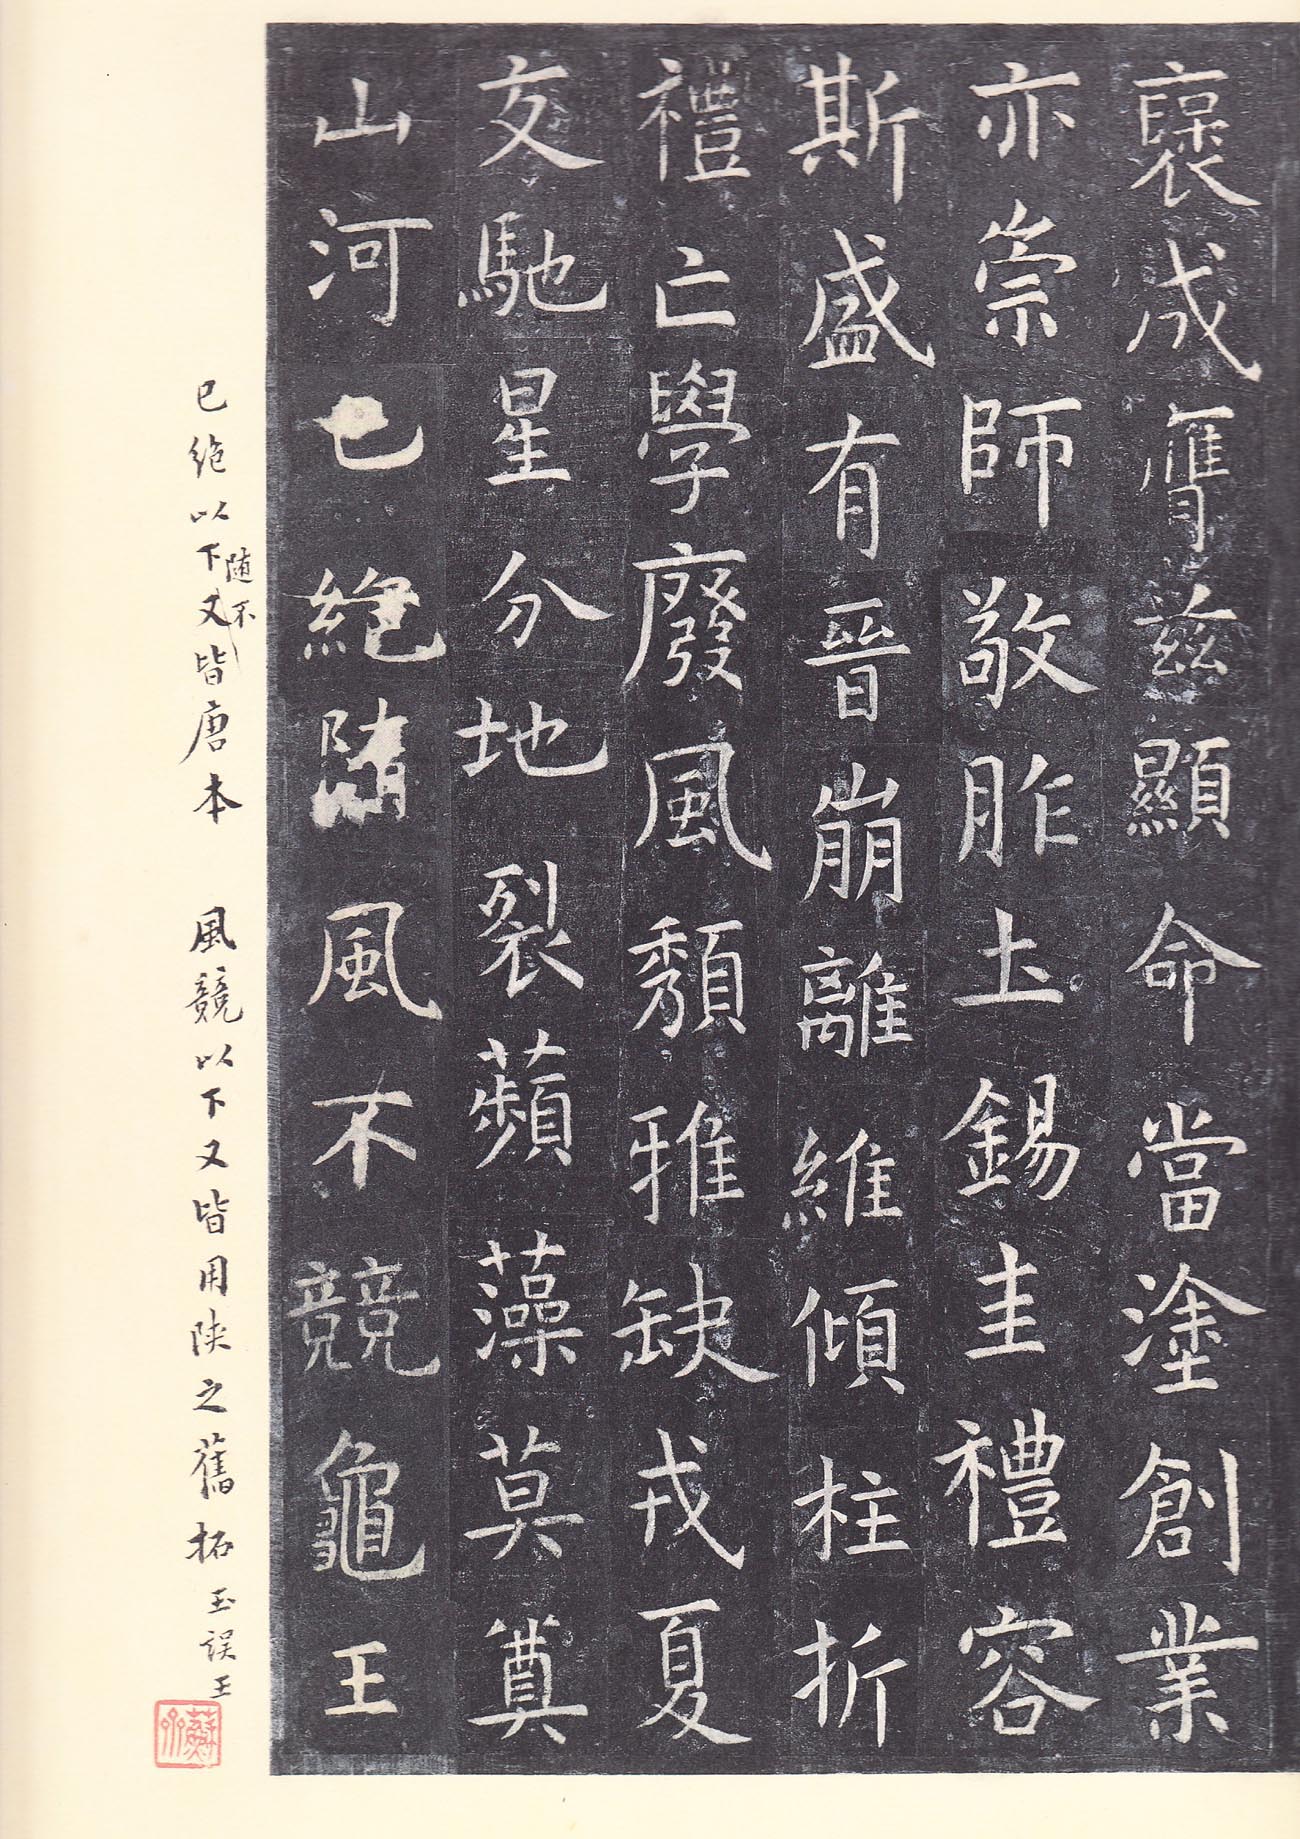 褒成膺兹顯命當塗創業
亦崇師敬胙土錫圭禮容
斯盛有晉崩離維傾柱折
禮亡學廢風頹雅缺戎夏
交馳星分地裂蘋藻莫奠
山河已絕隨風不競龜王
已絶以下又皆唐本 風競以下又皆用陕之舊拓 玉誤王
随不